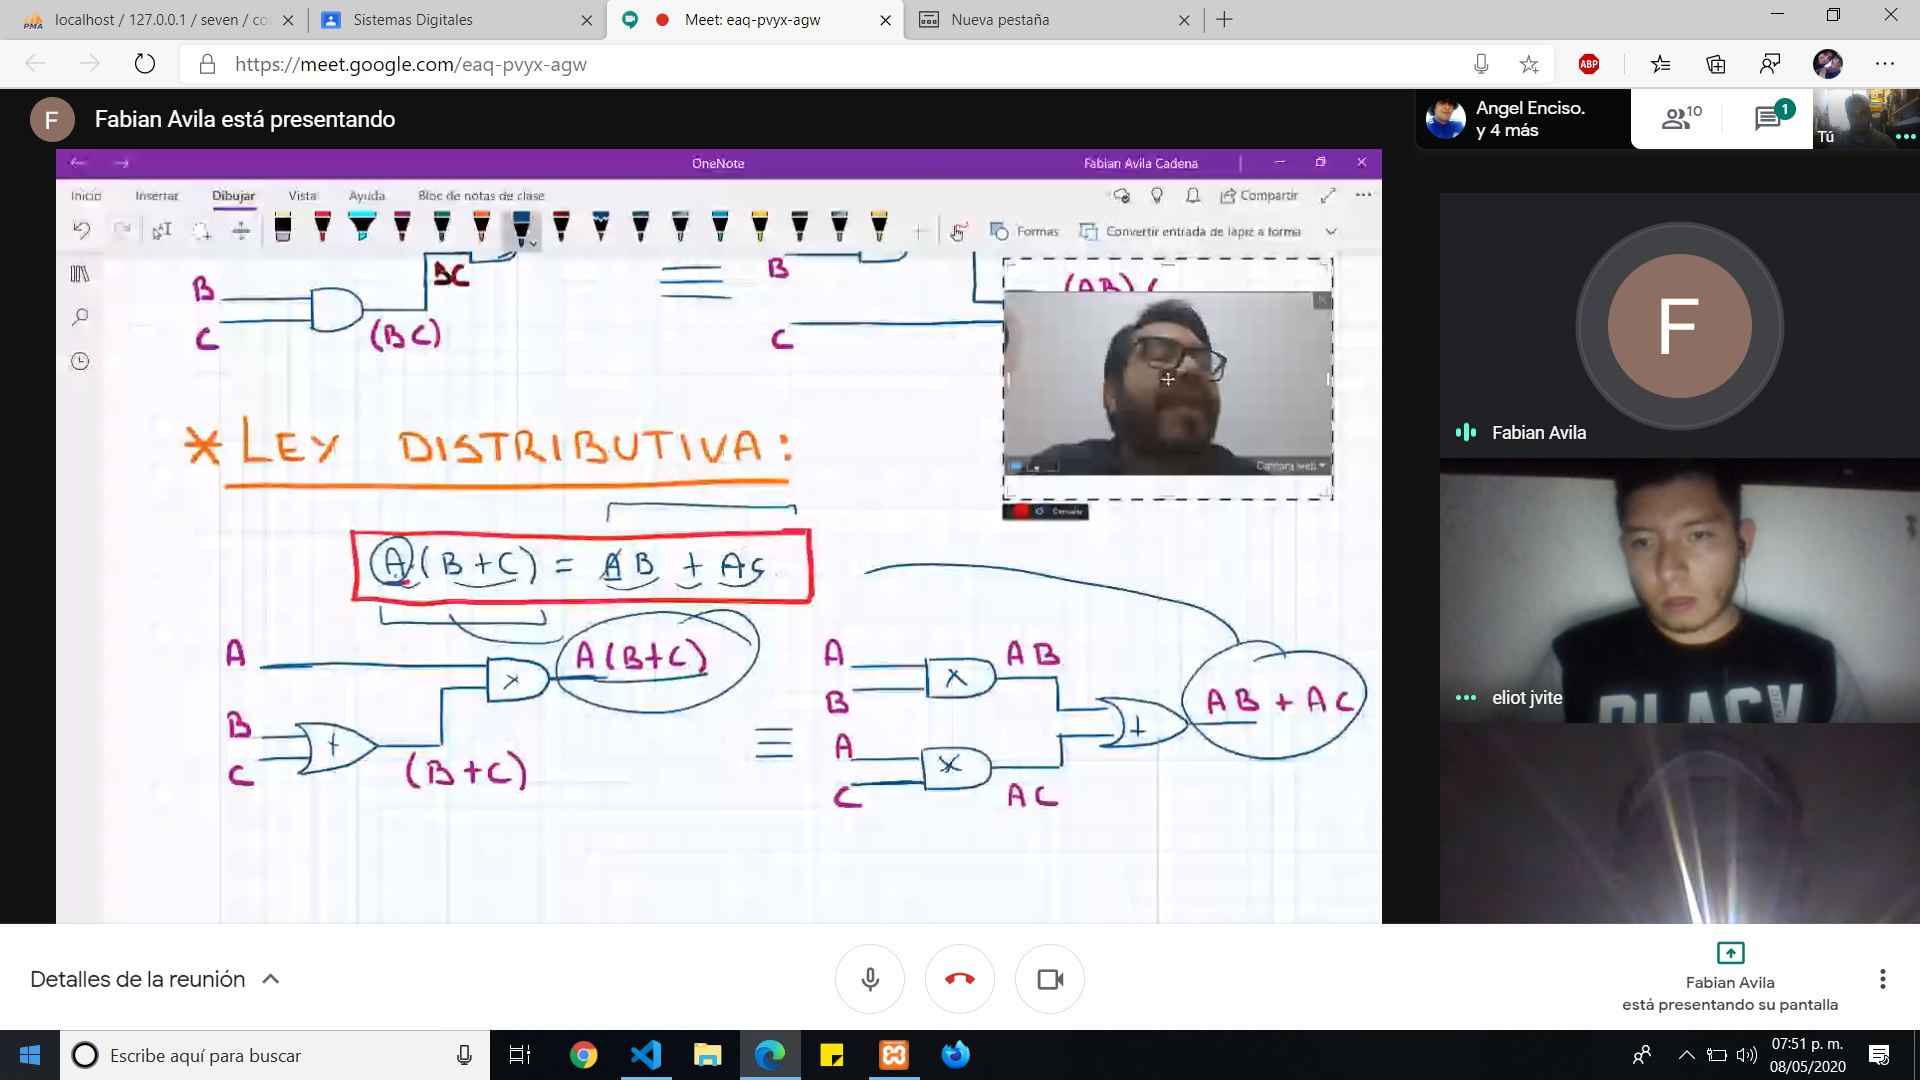 localhost / 127.0.0.1 / seven / co
Sistemas Digitales
Meet: eaq-pvyx-agw
Nueva pestaña
https://meet.google.com/eaq-pvyx-agw
ABP
F
Fabian Avila está presentando
Angel Enciso.
y 4 más
10
1
Tú
OneNote
Fabian Avila Cadena
Inicio
Insertar
Dibujar
Vista
Ayuda
Bloc de notas de clase
Compartir
Formas
Convertir entrada de lápiz a forma
B
C
BC
(BC)
B
C
(AB)
* LEY DISTRIBUTIVA:
A·(B+C) = AB + AC
A
B
C
(B+C)
×
+
A(B+C)
A
B
A
C
×
×
AB
AC
+
AB + AC
F
Fabian Avila
eliot jvite
BLACK
Detalles de la reunión
Fabian Avila
está presentando su pantalla
Escribe aquí para buscar
07:51 p. m.
08/05/2020